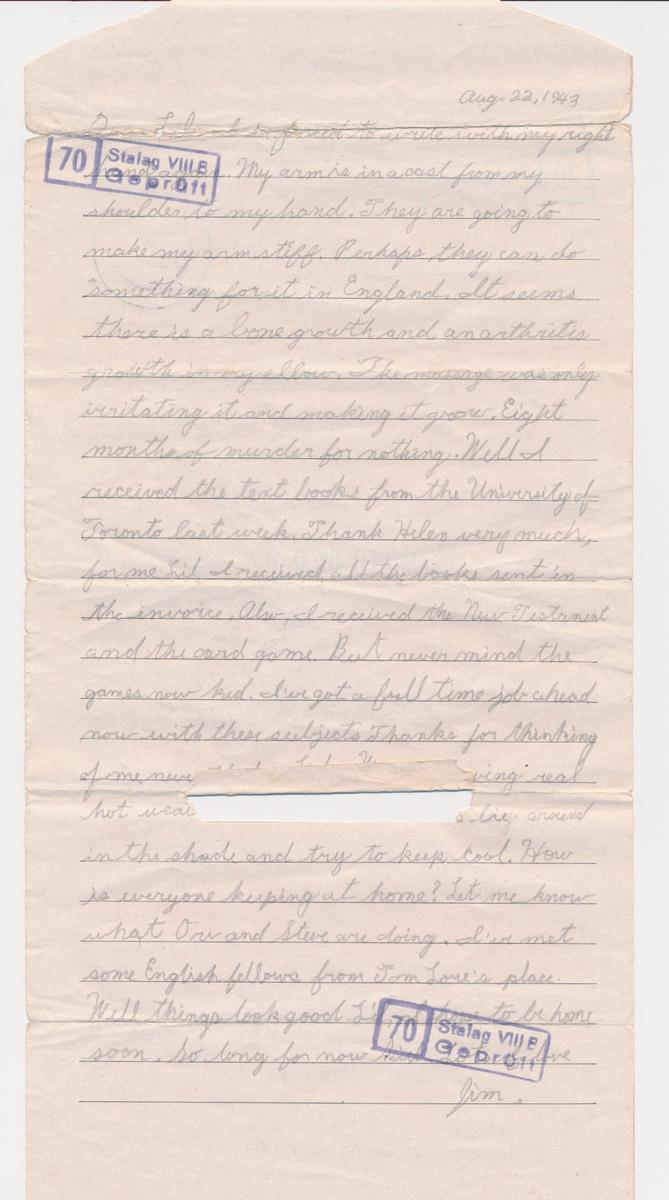 Aug. 22, 1943
forced to write with my right
70 Stalag VIII B
Geprüft
hand again. My arm is in a cast from my
shoulder to my hand. They are going to
make my arm stiff. Perhaps, they can do
something for it in England. It seems
there is a bone growth and an arthritis
growth in my elbow. The massage was only
irritating it and making it grow. Eight
months of murder for nothing. Well I
received the text books from the University of
Toronto last week. Thank Helen very much,
for me Lil. I received all the books sent in
the invoice. Also, I received the New Testament
and the card game. But never mind the
games now kid. I've got a full time job ahead
now with these subjects Thanks for thinking
of me real
hot around
in the shade and try to keep cool. How
is everyone keeping at home? Let me know
what Orv and Steve are doing. I've met
some English fellows from Tom Lone's place.
Well things look good Lil, hope to be home
70 Stalag VIII B
Geprüft
soon. So long for now love
Jim.